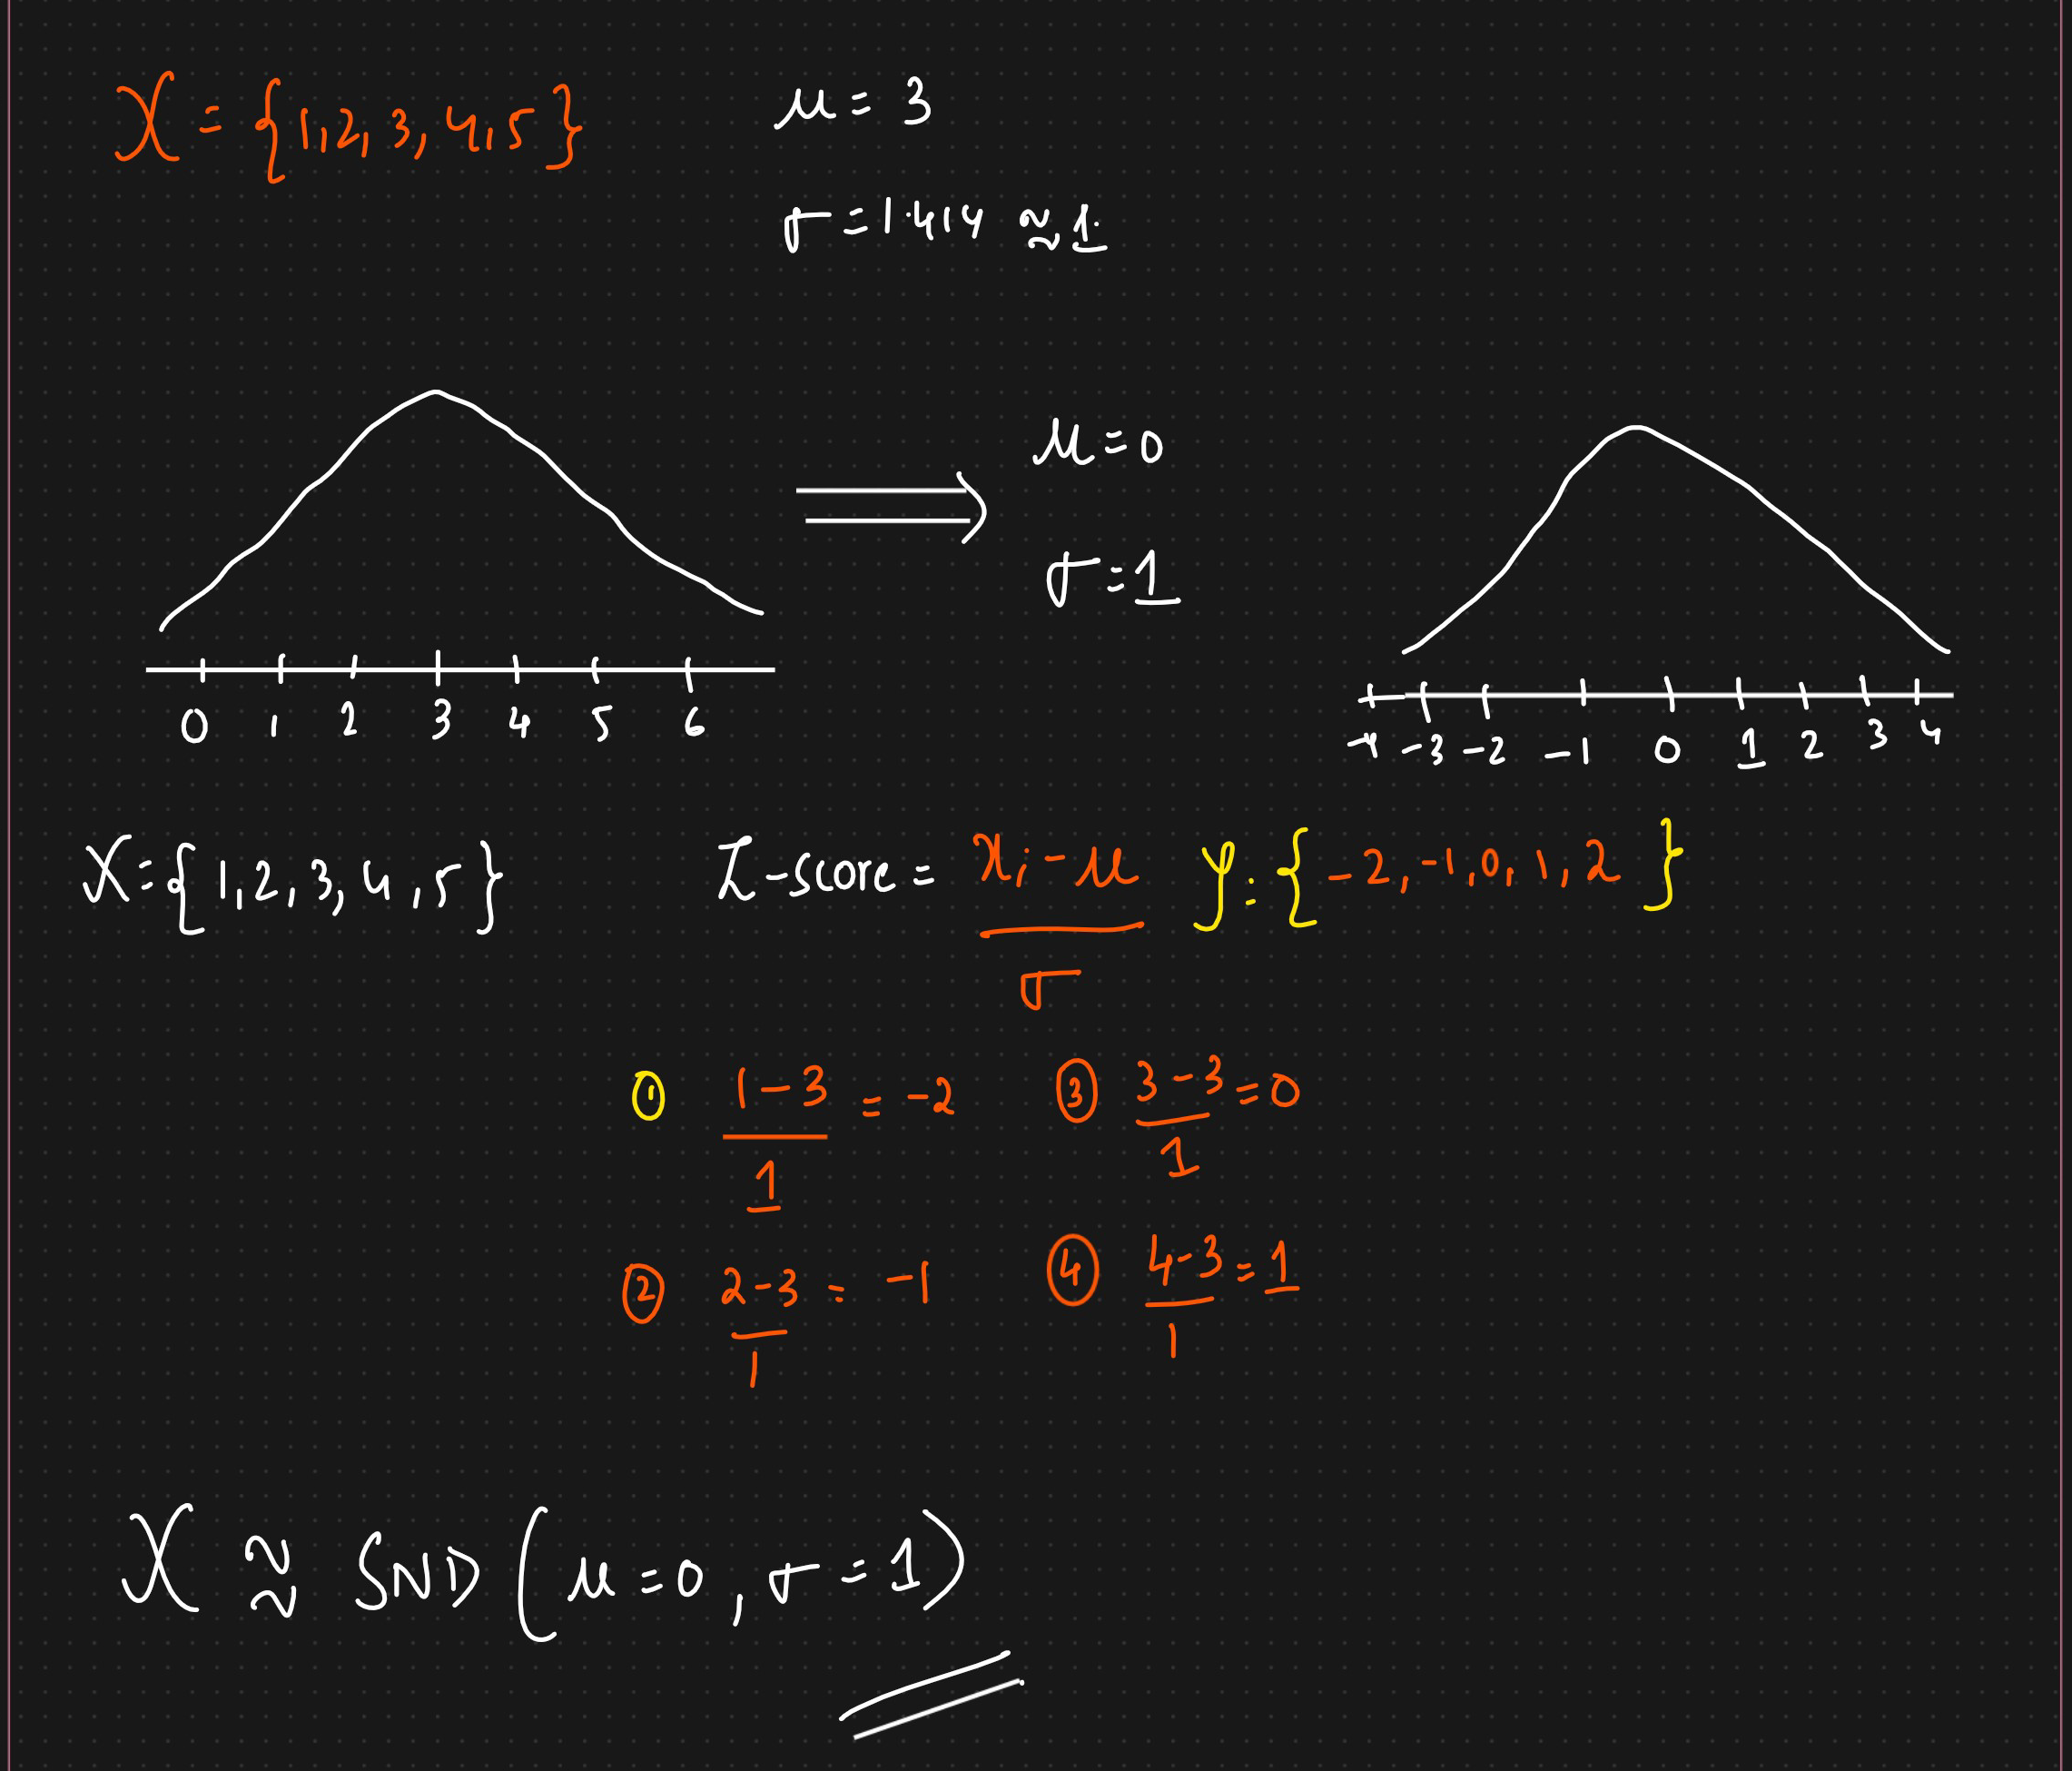 X = {1,2,3,4,5}
μ = 3
σ = 1.414 ≈ 1.
μ = 0
σ = 1
0 1 2 3 4 5 6
-4 -3 -2 -1 0 1 2 3 4
X = {1,2,3,4,5}
Z-score = xi - μ / σ
y = {-2, -1, 0, 1, 2}
① 1-3 / 1 = -2
③ 3-3 / 1 = 0
② 2-3 / 1 = -1
④ 4-3 / 1 = 1
X ≈ SND (μ=0, σ=1)